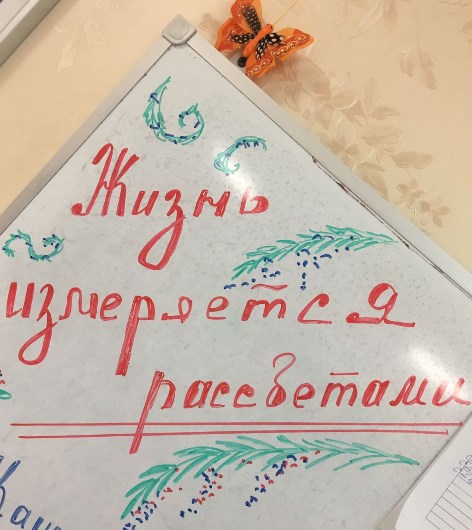 Жизнь
измеряется
рассветами